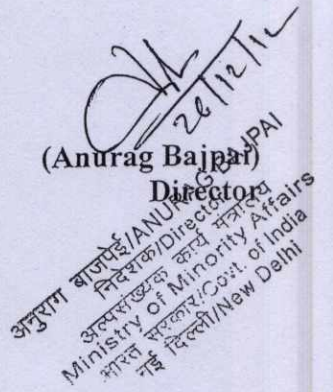 26/12/12
(Anurag Bajpai)
Director
अनुराग बाजपेई/ANURAG BAJPAI
निदेशक/Director
अल्पसंख्यक कार्य मंत्रालय
Ministry of Minority Affairs
भारत सरकार/Govt. of India
नई दिल्ली/New Delhi